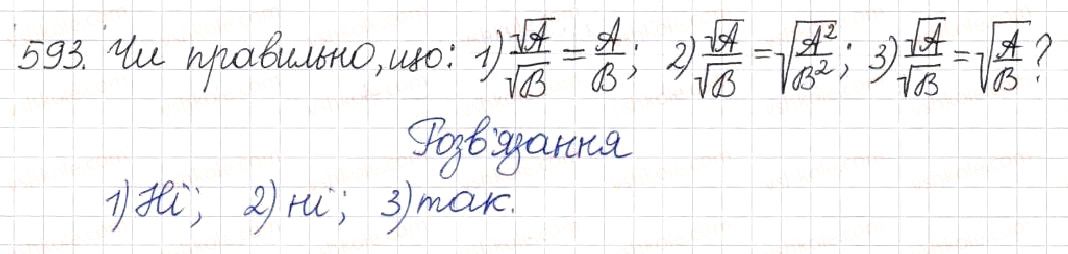 593. Чи правильно, що: 1) √A/√B = A/B; 2) √A/√B = √(A²/B²); 3) √A/√B = √(A/B)?
Розв'язання
1) Ні; 2) ні; 3) так.